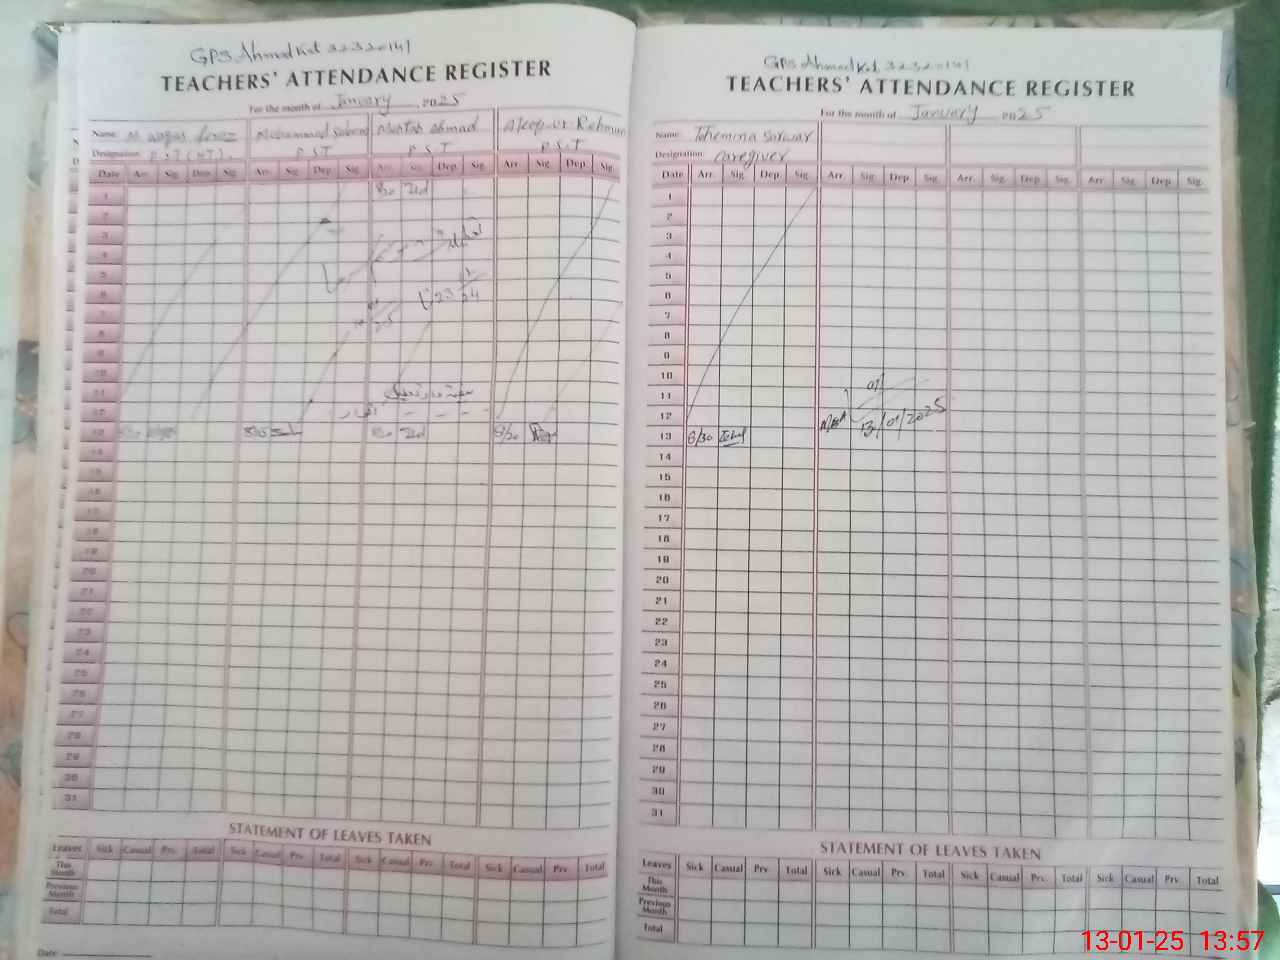 GPS Ahmad Kot 32320141
TEACHERS' ATTENDANCE REGISTER
For the month of January 2025
Name: Muhammad Mehtab Ahmad
Designation: P.S.T (HT). P.S.T P.S.T P.S.T
Date Arr. Sig. Dep. Sig. Arr. Sig. Dep. Sig. Arr. Sig. Dep. Sig. Arr. Sig. Dep. Sig.
1 8/30
2
3
4
5
6
7
8
9
10
11
12
13 8/30 8/30
14
15
16
17
18
19
20
21
22
23
24
25
26
27
28
29
30
31
STATEMENT OF LEAVES TAKEN
Leaves Sick Casual Prv. Total Sick Casual Prv. Total Sick Casual Prv. Total Sick Casual Prv. Total
This Month
Previous Month
Total
Date:
GPS Ahmad Kot 32320141
TEACHERS' ATTENDANCE REGISTER
For the month of January 2025
Name: Tehemina Sarwar
Designation: Caregiver
Date Arr. Sig. Dep. Sig. Arr. Sig. Dep. Sig. Arr. Sig. Dep. Sig. Arr. Sig. Dep. Sig.
1
2
3
4
5
6
7
8
9
10
11
12
13 8/30 13/01/2025
14
15
16
17
18
19
20
21
22
23
24
25
26
27
28
29
30
31
STATEMENT OF LEAVES TAKEN
Leaves Sick Casual Prv. Total Sick Casual Prv. Total Sick Casual Prv. Total Sick Casual Prv. Total
This Month
Previous Month
Total
13-01-25 13:57